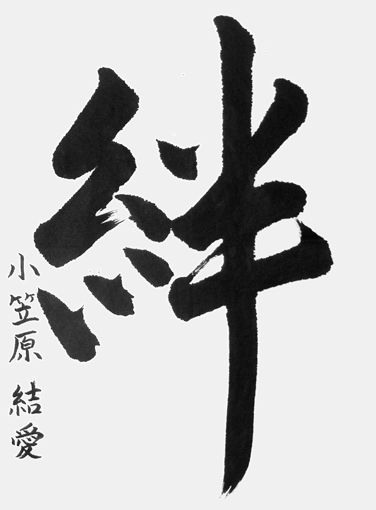 絆
小笠原 結愛